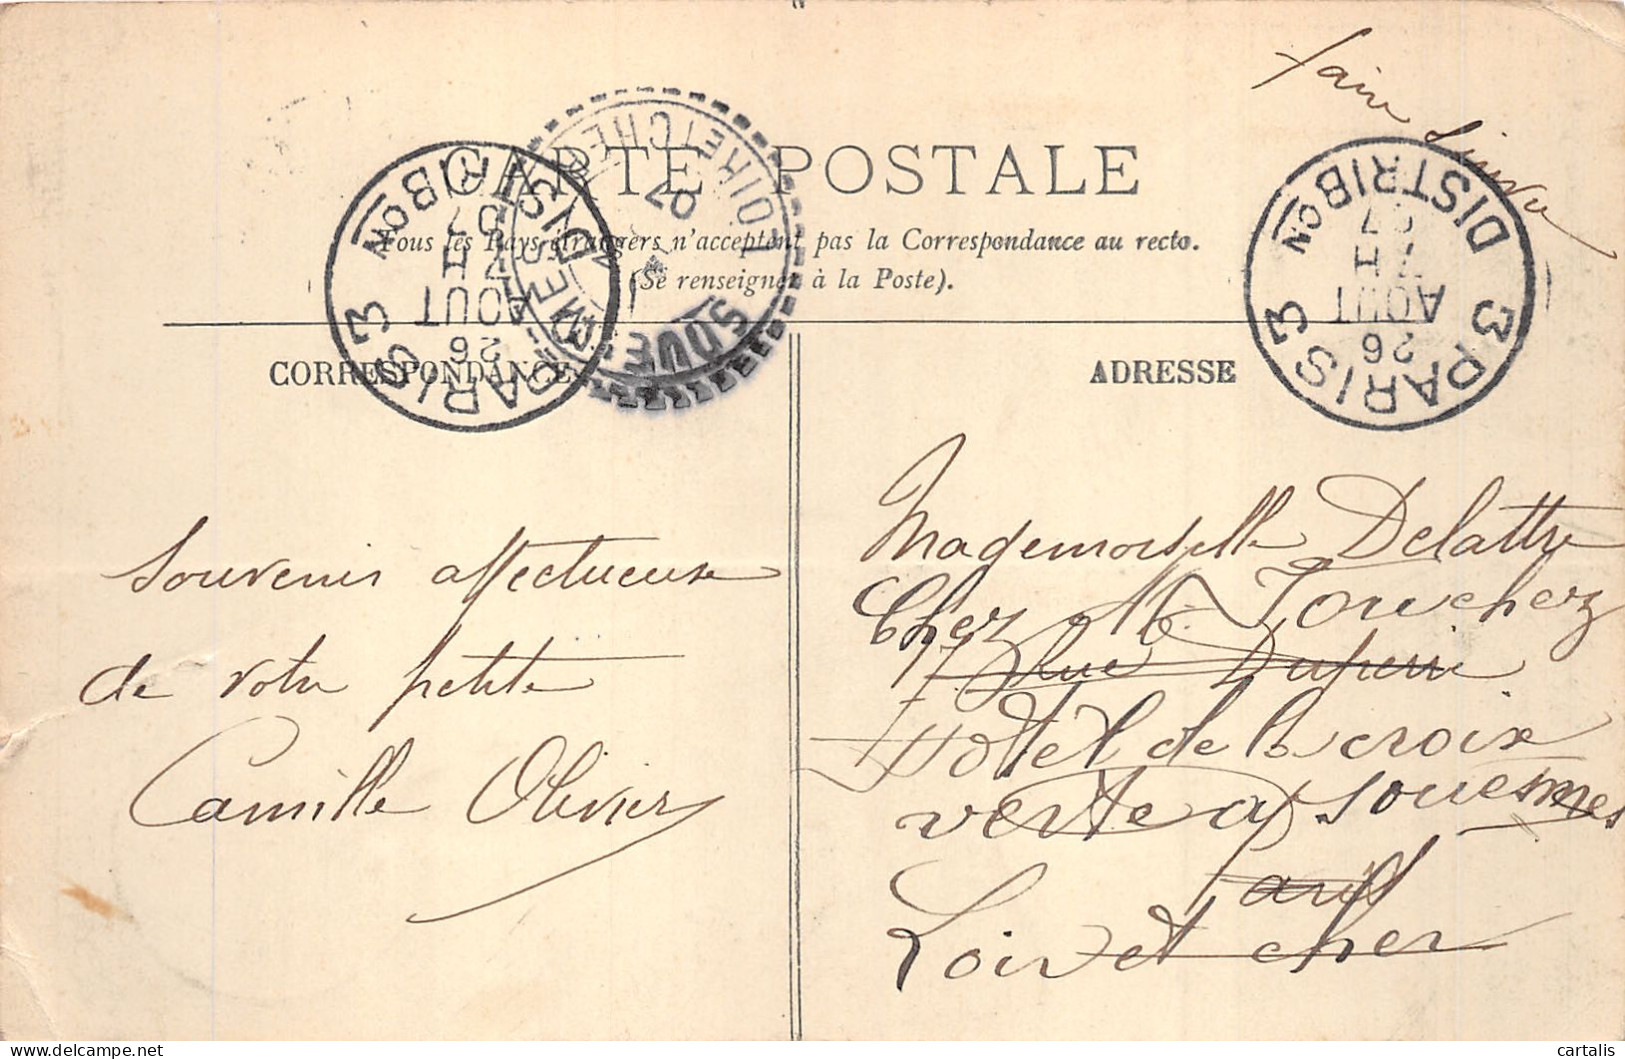 faire suivre
CARTE POSTALE
Tous les Pays étrangers n'acceptent pas la Correspondance au recto.
(Se renseigner à la Poste).
PARIS 3 DISTRIBon
7 H
26 AOUT 07
SOUESMES
LOIR ET CHER
07
3 PARIS 3 DISTRIBon
7 H
26 AOUT 07
CORRESPONDANCE
ADRESSE
Souvenir affectueuse
de votre petite
Camille Olivier
Mademoiselle Delattre
Chez M. Touchez
7 Rue Duperré
Hotel de la croix
verte a Souesmes
Paris
Loir et cher
cartalis